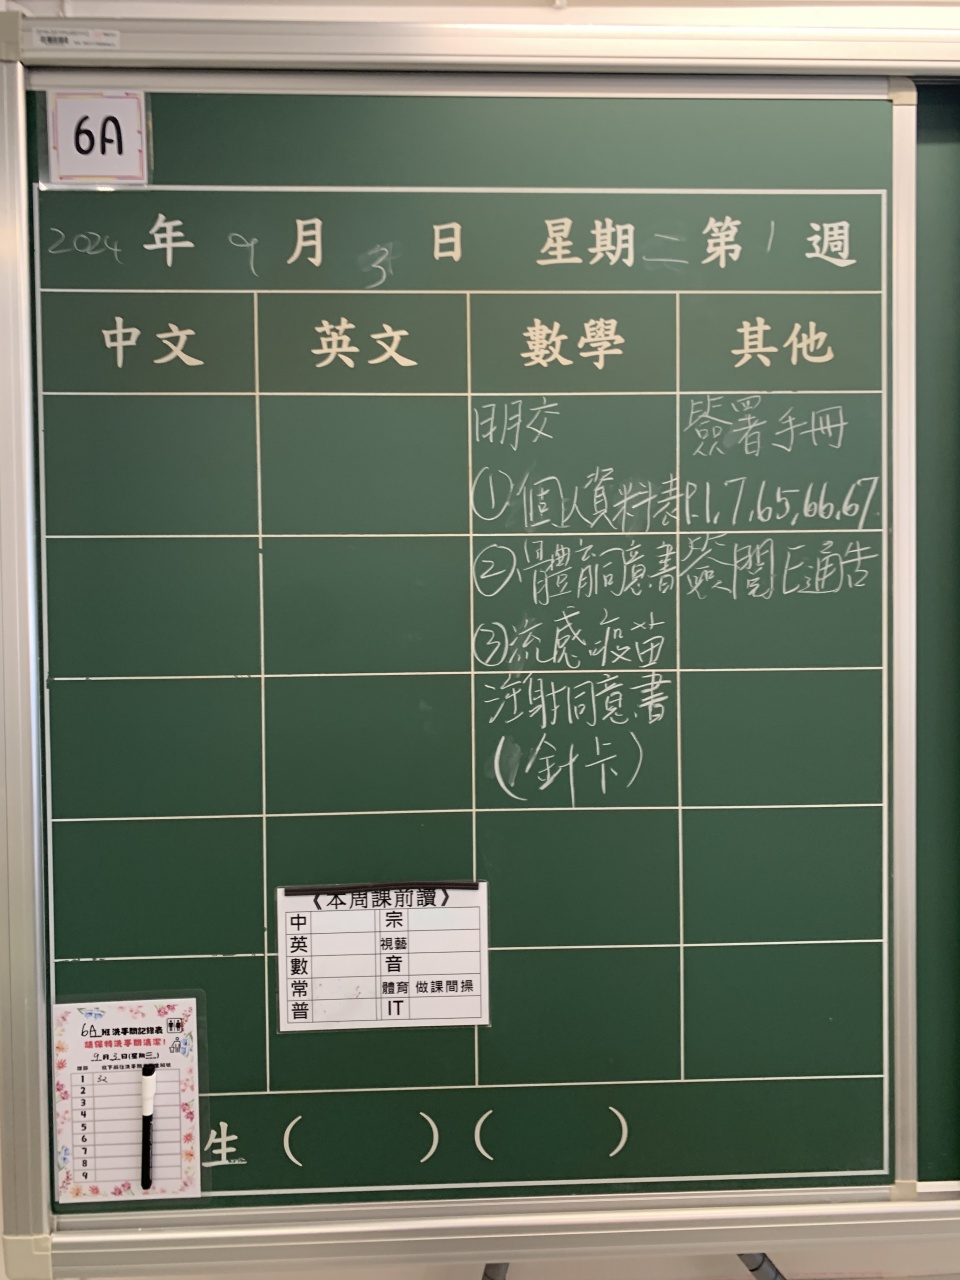 6A
2024 年 9 月 3 日 星期二 第 1 週
中文 英文 數學 其他
明交
①個人資料表
②體育同意書
③流感疫苗
注射同意書
(針卡)
簽署手冊
P.1,7,65,66,67
簽閱E通告
《本周課前讀》
中 宗
英 視藝
數 音
常 體育 做課間操
普 IT
6A 班洗手間記錄表
請保持洗手間清潔!
9月3日(星期三)
1
2
3
4
5
6
7
8
9
生 ( ) ( )